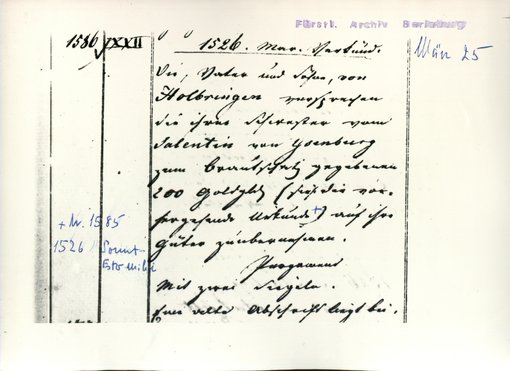 Fürstl. Archiv Berleburg
März 25
1586 XXII
1526. Mar. Verkünd.
Die, Vater und Sohn, von
Holbringen versprechen
die ihrer Schwester vom
Salentin von Ysenburg
zum Brautschatz gegebenen
200 Goldgld (siehe die vor-
hergehende Urkunde+) auf ihre
Güter zu übernehmen.
Pergament
Mit zwei Siegeln.
Eine alte Abschrift liegt bei.
+ Nr. 1585
1526 Sonnt.
Estomihi